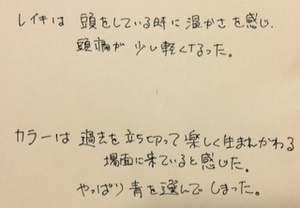 レイキは 頭をしている時に温かさを感じ、
頭痛が少し軽くなった。
カラーは 過去を立ち切って楽しく生まれかわる
場面に来ていると感じた。
やっぱり青を選んでしまった。